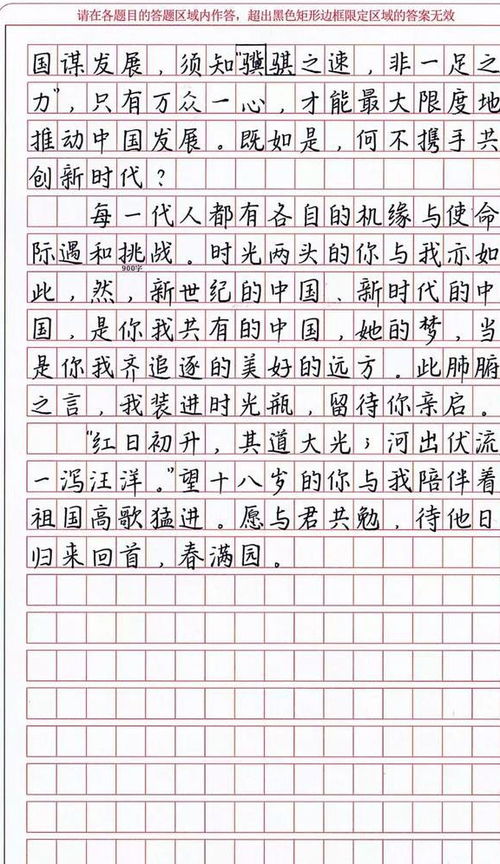 请在各题目的答题区域内作答，超出黑色矩形边框限定区域的答案无效
国谋发展，须知“骥骐之速，非一足之
力”，只有万众一心，才能最大限度地
推动中国发展。既如是，何不携手共
创新时代？
每一代人都有各自的机缘与使命
际遇和挑战。时光两头的你与我亦如
900字
此，然，新世纪的中国、新时代的中
国，是你我共有的中国，她的梦，当
是你我齐追逐的美好的远方。此肺腑
之言，我装进时光瓶，留待你亲启。
“红日初升，其道大光；河出伏流
一泻汪洋。”望十八岁的你与我陪伴着
祖国高歌猛进。愿与君共勉，待他日
归来回首，春满园。